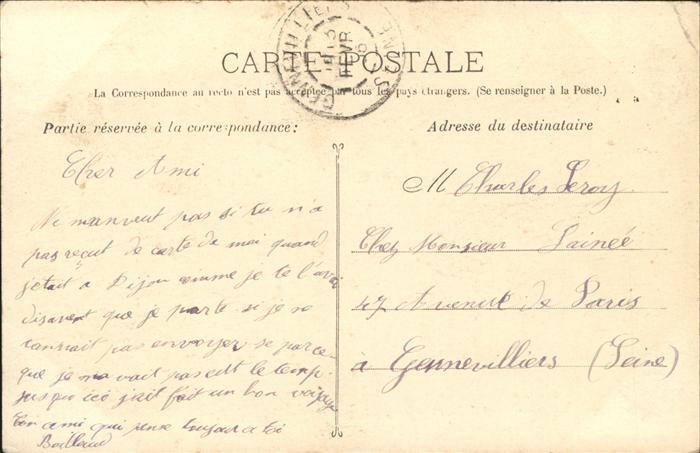 CARTE POSTALE
La Correspondance au recto n'est pas acceptée par tous les pays étrangers. (Se renseigner à la Poste.)
Partie réservée à la correspondance:
Adresse du destinataire
Cher Ami
Ne manveut pas si tu n'a
pas reçut de carte de moi quand
jetait a Dijon comme je te l'avai
disavent que je parte si je ne
pas envoyer se parce-
que je na vait pas eut le temp
jusqu ici jait fait un bon voyage
ton ami qui pense toujour a toi
M Charles Leroy
Chez Monsieur Lainée
47 Avenue de Paris
à Gennevilliers (Seine)
GENNEVILLIERS SEINE